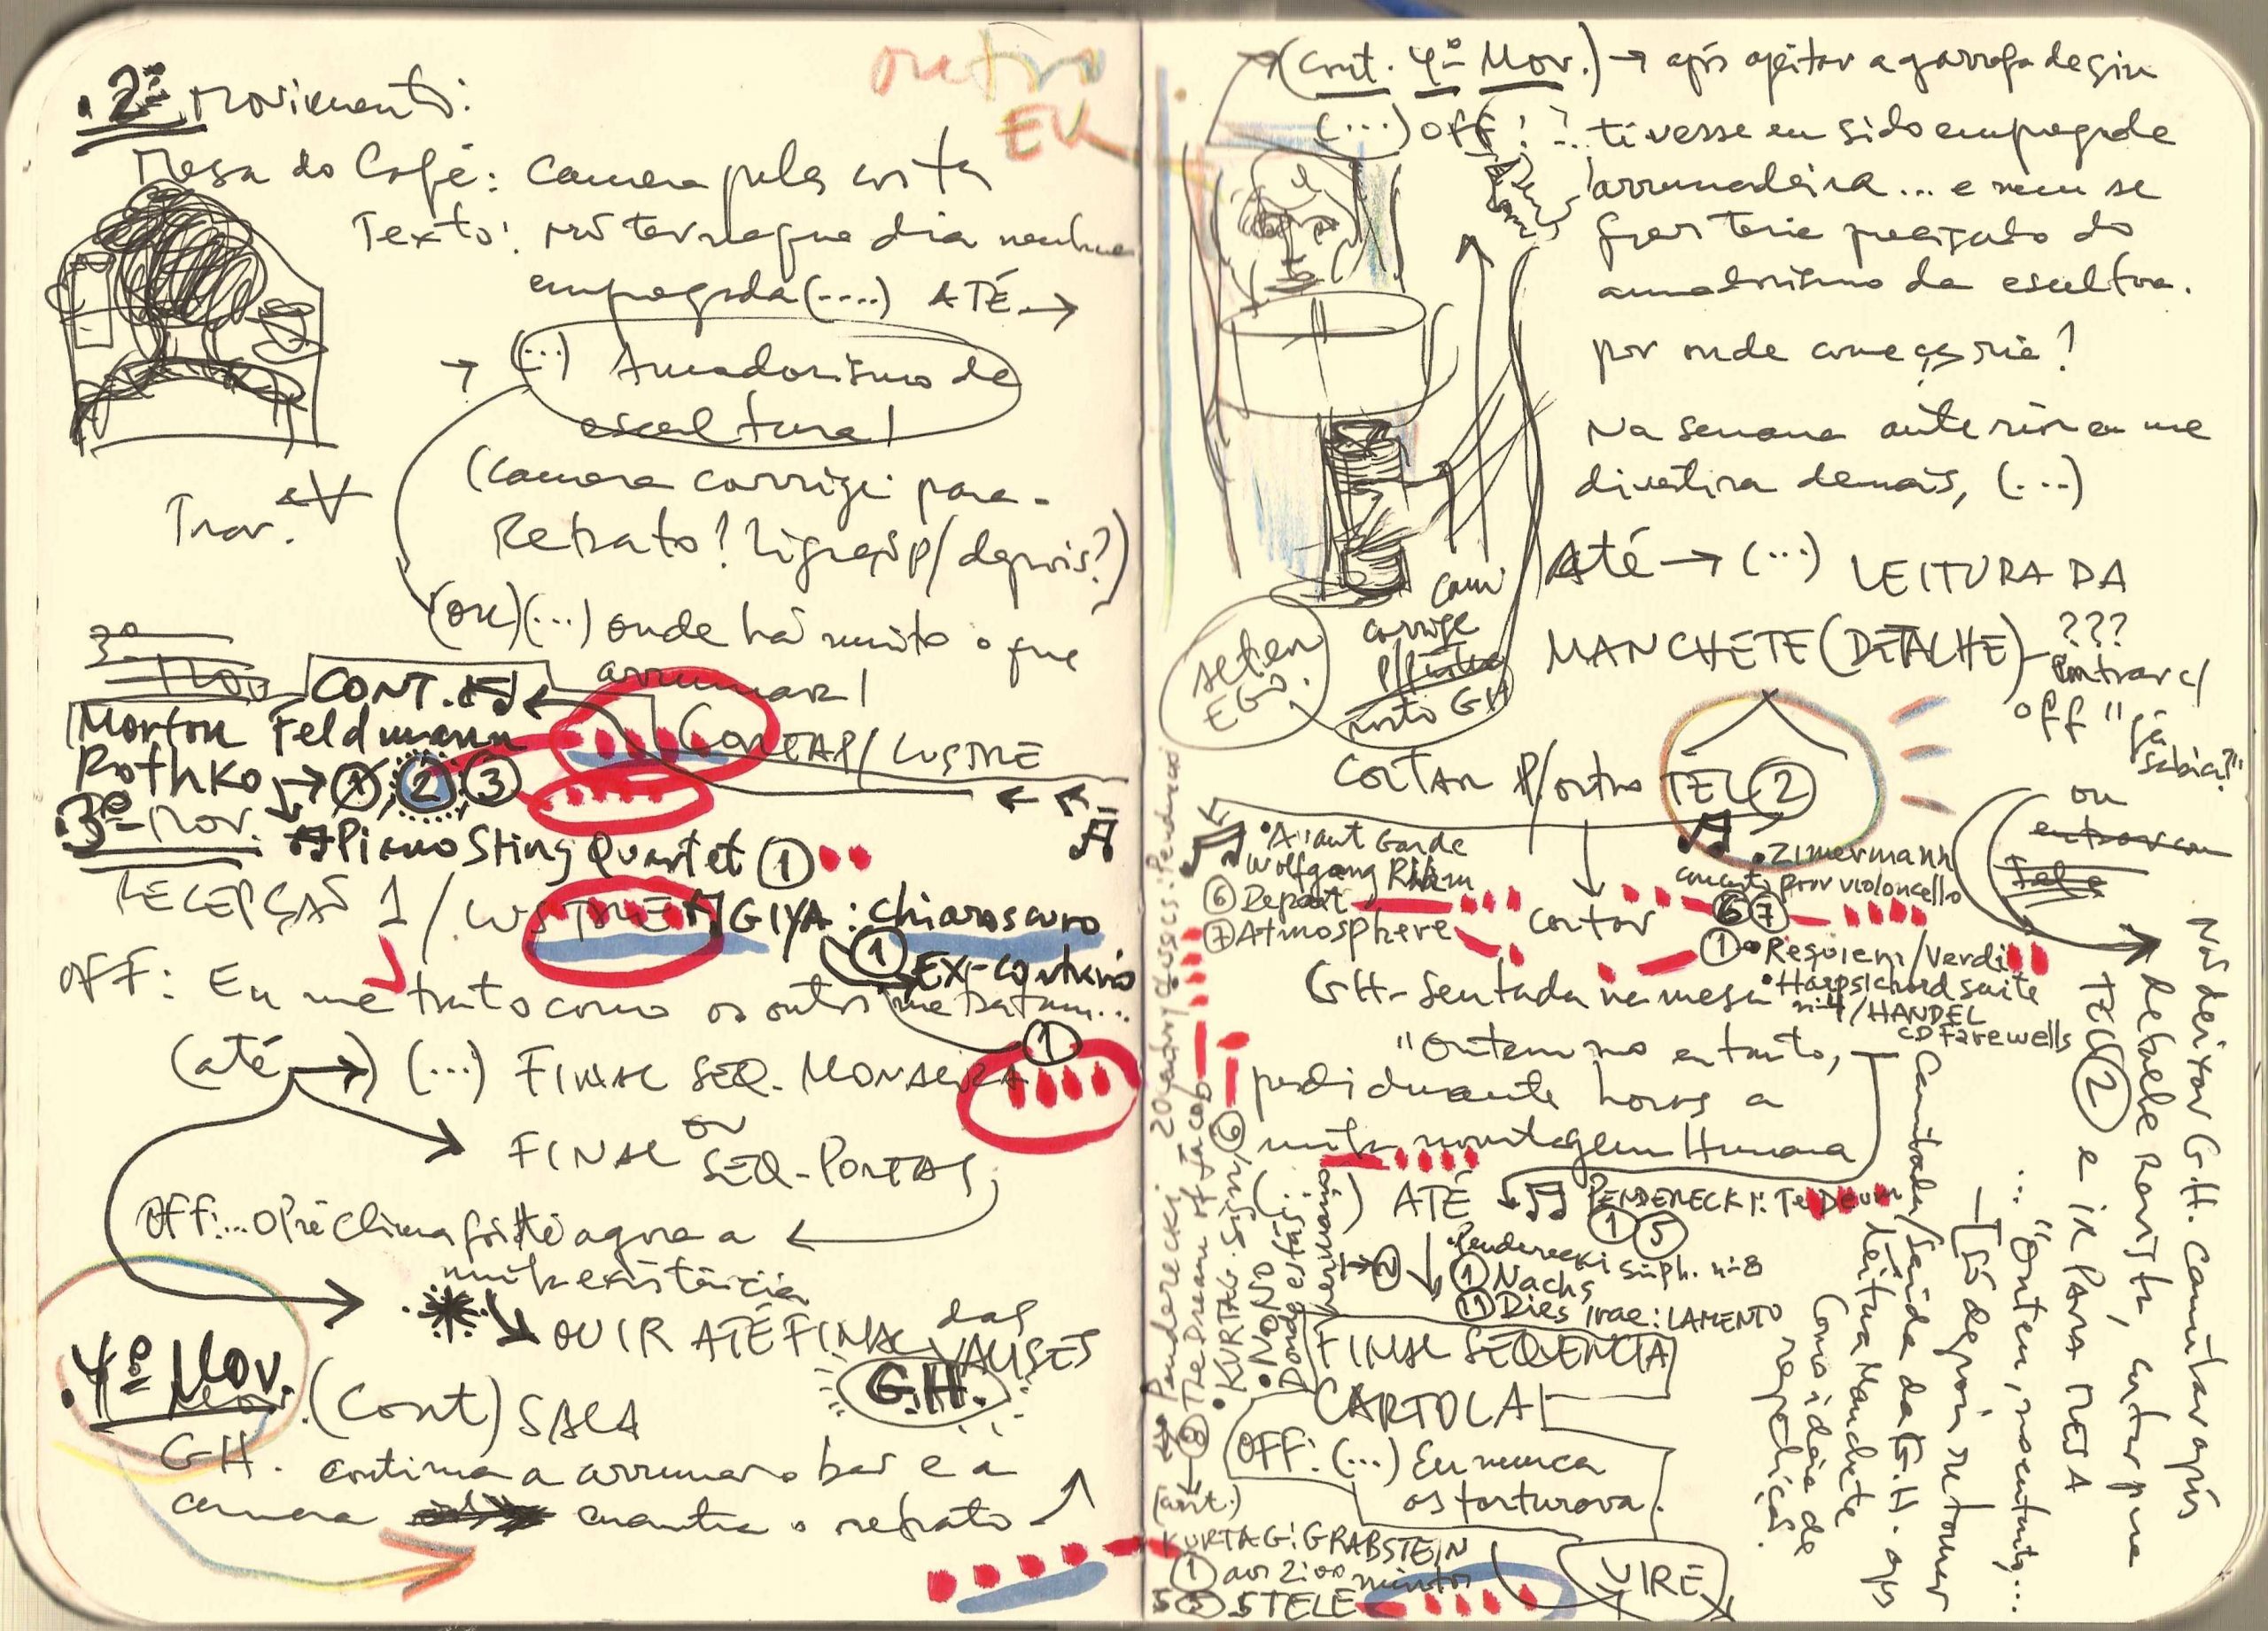 outro
EU
.2º Movimento:
Mesa do Café: Camera pelas costas
Texto: não ter naquele dia nenhuma
empregada (....) ATÉ →
→ (...) Amadorismo de
escultura!
(Camera corrige para
Retrato? Ligação p/ depois?)
Trav.
(ou) (...) onde há muito o que
arrumar!
3º
Mov
CONT.
Morton Feldmann
Rothko → 1 2 3
CONTRAP/ LUSTRE
.3º Mov. Piano String Quartet 1
RECEPÇÃO 1 / LUSTRE GIYA: chiaroscuro
1 EX-contrário
OFF: Eu me trato como os outros me tratam...
(até →) (...) FINAL SEQ. MONALISA
1
ou
FINAL SEQ-PORTAS
OFF:... O Pré clímax foi até agora a
minha existência
→ OUVIR ATÉ FINAL das VALISES
.4º Mov. (Cont) SALA
G.H.
GH. continua a arrumar o bar e a
camera encontra o retrato
(cont. 4º Mov.) → após apitar a garrafa de gin
(...) off: ... tivesse eu sido empregada
arrumadeira... e nem se
quer teria precisado do
amadorismo da escultora.
por onde começaria?
Na semana anterior eu me
divertira demais, (...)
Até → (...) LEITURA DA
MANCHETE (DETALHE)
???
Entrar c/
off "já
sabia?"
ou
entrar com
tele
cam
corrige
p/
rosto GH
alter
EGO.
CORTAR P/ outro TEL 2
• Avant Garde
Wolfgang Rihm
6 Depart
7 Atmosphere
Cortar
6 7
• Zimermann
concerto para violoncello
1 • Requiem/Verdi
• Harpsichord suite
nº4/HANDEL
CD Farewells
GH- Sentada na mesa
"Ontem no entanto,
perdi durante horas a
minha montagem Humana
(...) ATÉ PENDERECKI: Te Deum
1 5
• Penderecki Simph. nº8
1 Nachs
11 Dies Irae: LAMENTO
FINAL SEQUENCIA
CARTOLA
OFF: (...) Eu nunca
os torturava.
20 century classics: Penderecki
Penderecki
8 The Dream of Jacob
• KURTAG. Signs, 6
• NONO
Donde estás
hermano
(ant.)
KURTAG: GRABSTEIN
1 aos 2:00 minutos
STELE
VIRE
Nós deixar G.H. Caminhar após
detalhe Revista, cortar para
TEL 2 e IR PARA MESA
... "Ontem, no entanto...
Só depois retomar
Caminhada/saída da G.H. após
leitura Manchete
Como idéia de
repetição.